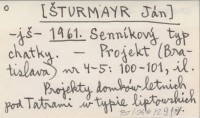 [ŠTURMAYR Ján]
-jš- 1961. Senníkový typ
chatky. - Projekt (Bra-
tislava) nr 4-5: 100-101, il.
Projekty domków letnich
pod Tatrami w typie liptowskich